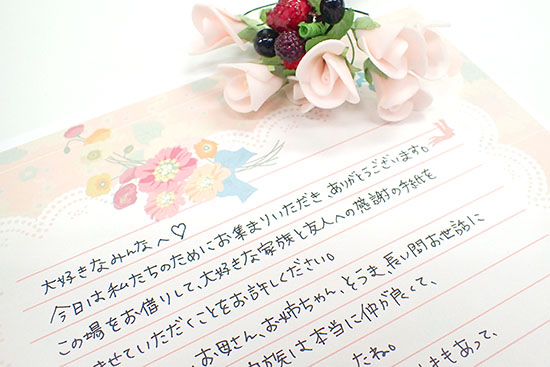 大好きなみんなへ♡
今日は私たちのためにお集まりいただき、ありがとうございます。
この場をお借りして、大好きな家族と友人への感謝の手紙を
ませていただくことをお許しください。
お母さん、お姉ちゃん、とうま、長い間お世話に
家族は本当に仲が良くて、
たね。
もあって、